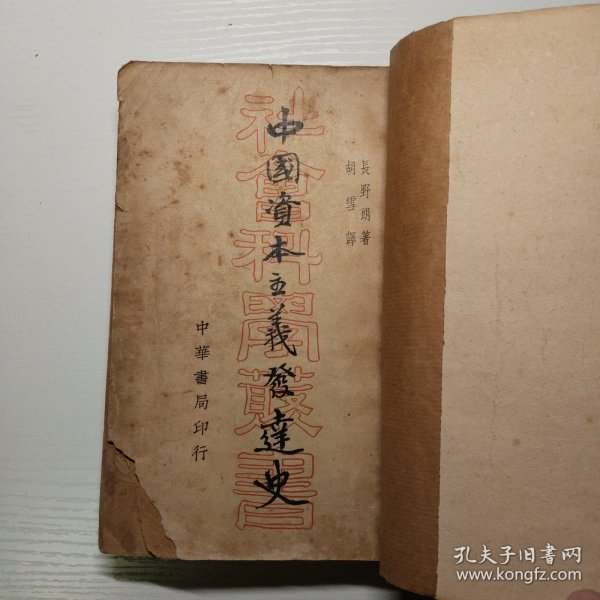 長野朗著
胡雪譯
中國資本主義發達史
社會科學叢書
中華書局印行
孔夫子旧书网
www.kongfz.com